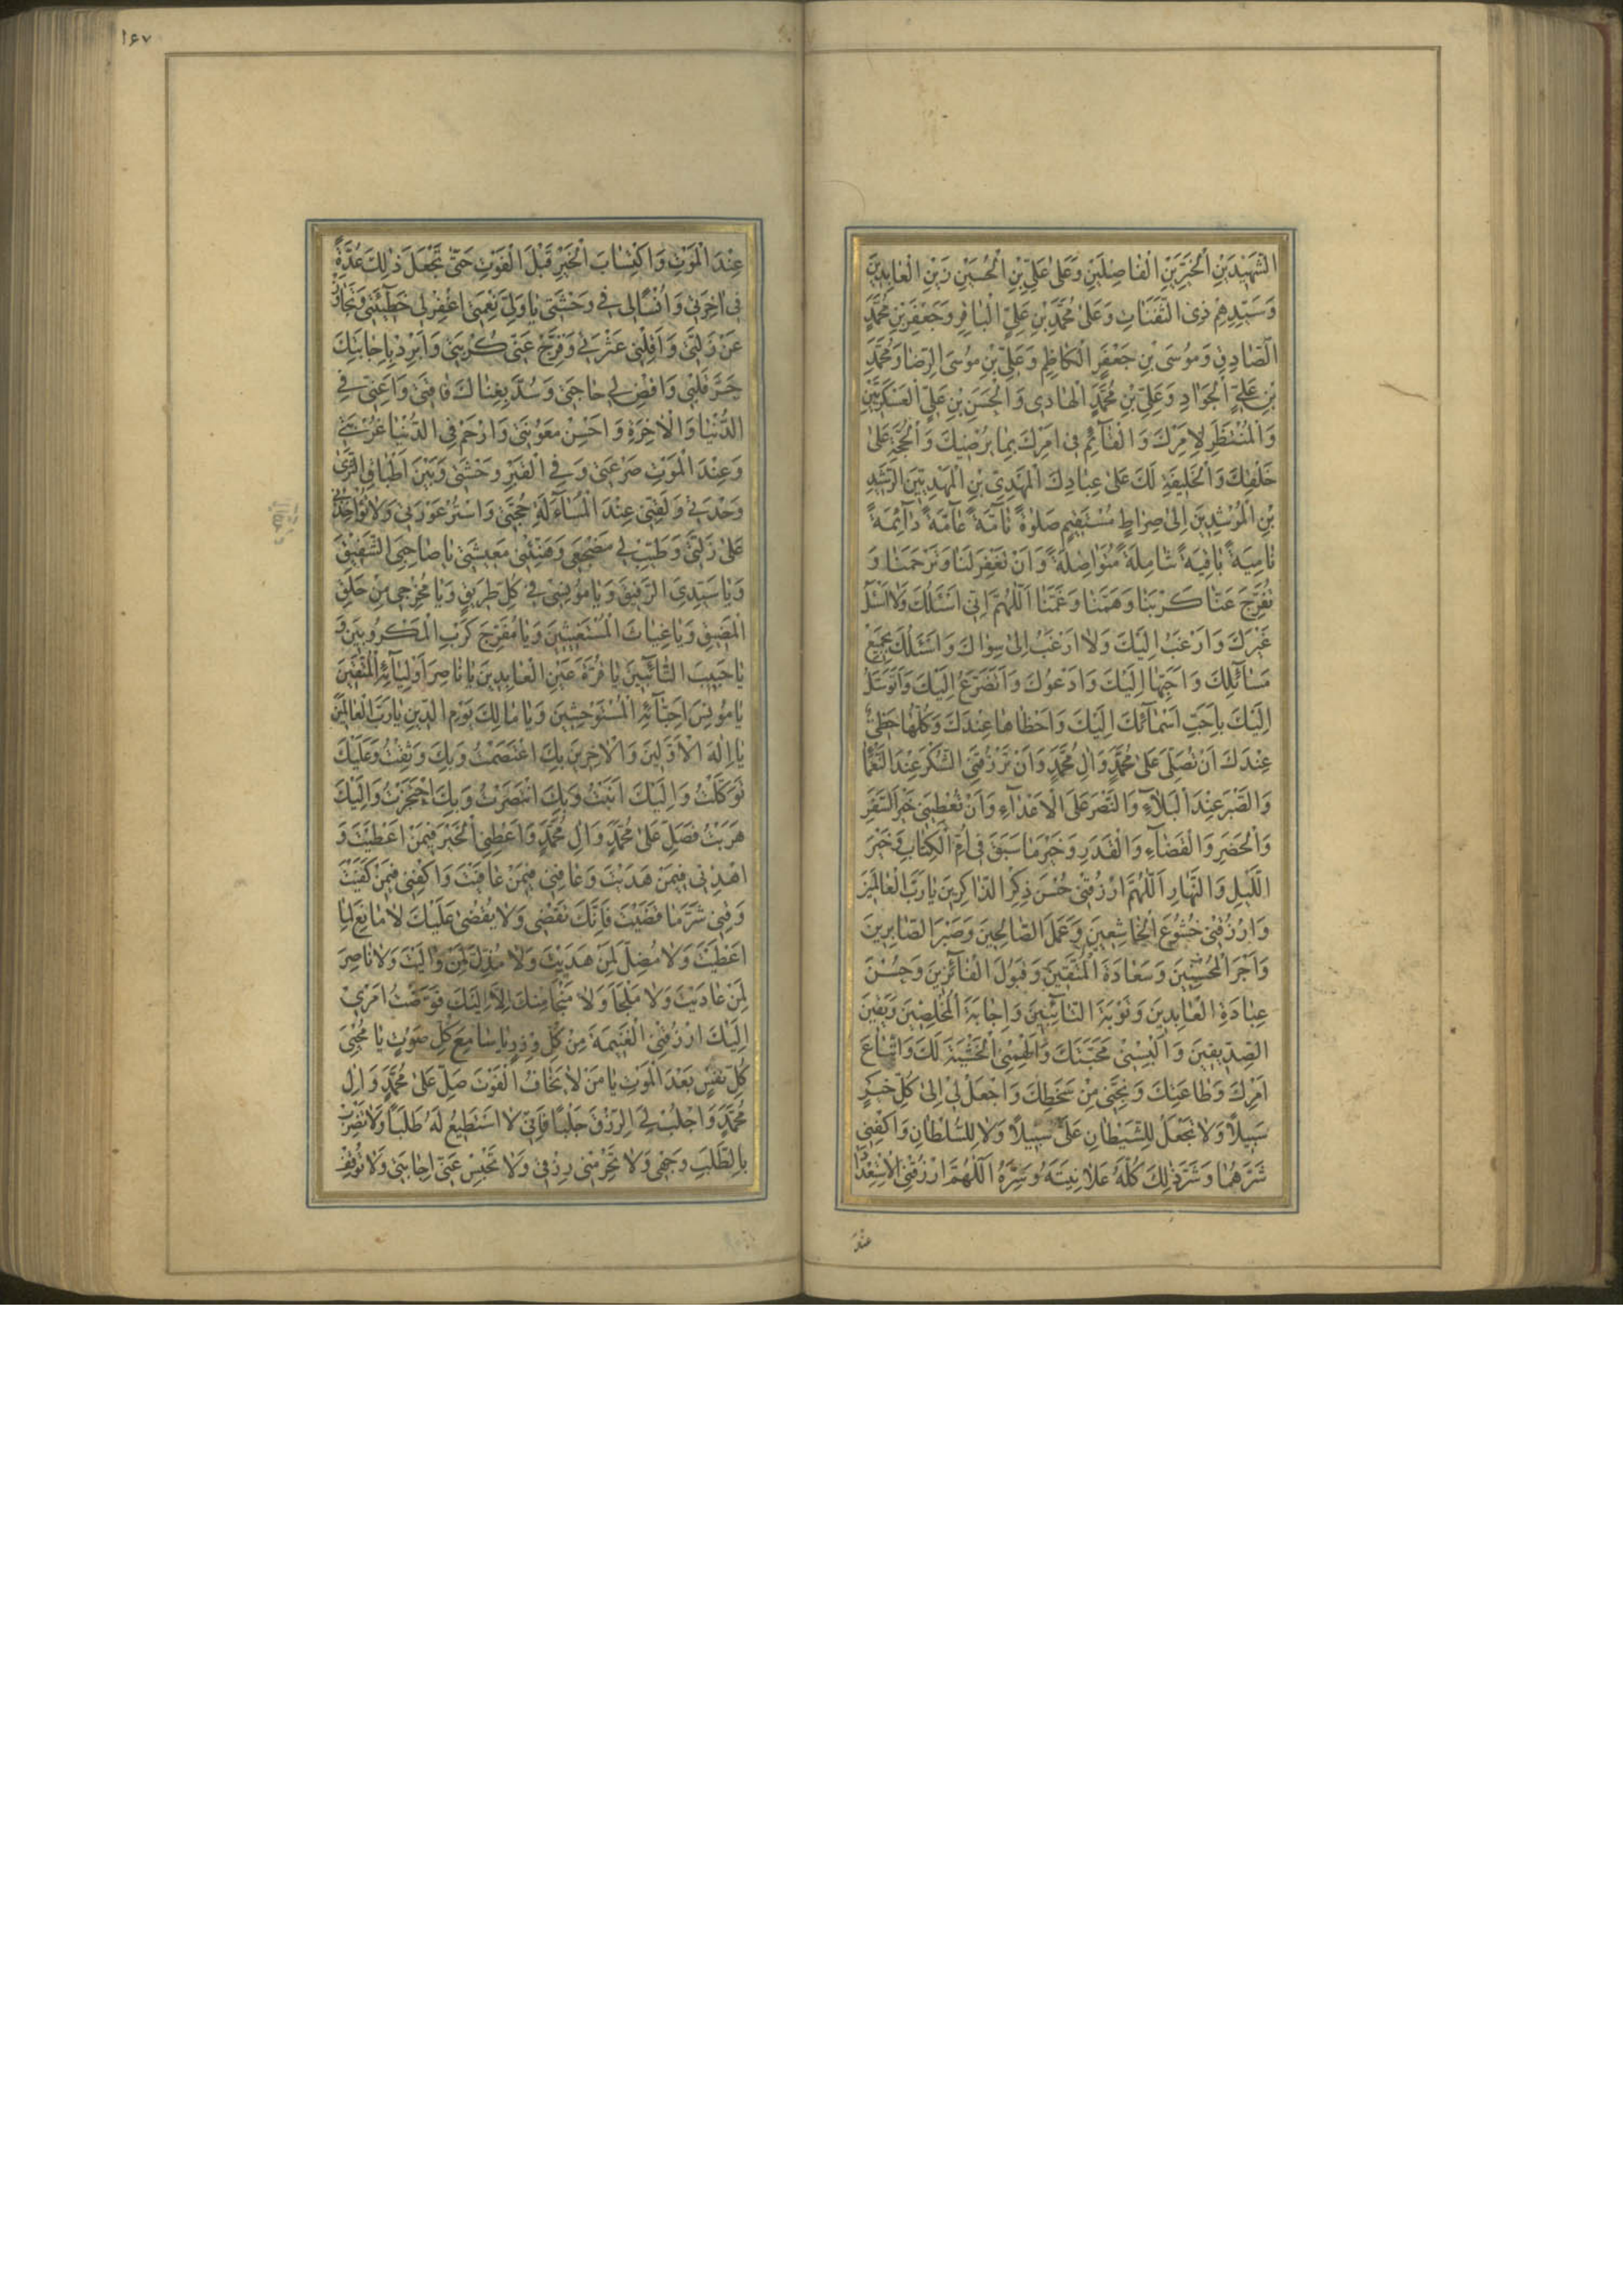 الشَّهِيدَيْنِ الْخَيِّرَيْنِ الْفَاضِلَيْنِ وَعَلىٰ عَلِيِّ بْنِ الْحُسَيْنِ زَيْنِ الْعَابِدِينَ
وَسَيِّدِهِمْ ذِى الثَّفَنَاتِ وَعَلىٰ مُحَمَّدِ بْنِ عَلِيٍّ الْبَاقِرِ وَجَعْفَرِ بْنِ مُحَمَّدٍ
الصَّادِقِ وَمُوسَى بْنِ جَعْفَرٍ الْكَاظِمِ وَعَلِيِّ بْنِ مُوسَى الرِّضَا وَمُحَمَّدِ
بْنِ عَلِيٍّ الْجَوَادِ وَعَلِيِّ بْنِ مُحَمَّدٍ الْهَادِى وَالْحَسَنِ بْنِ عَلِيٍّ الْعَسْكَرِيَّيْنِ
وَالْمُنْتَظَرِ لِاَمْرِكَ وَالْقَآئِمِ فِى اَمْرِكَ بِمَا يُرْضِيكَ وَالْحُجَّةِ عَلىٰ
خَلْقِكَ وَالْخَلِيفَةِ لَكَ عَلىٰ عِبَادِكَ الْمَهْدِىِّ بْنِ الْمَهْدِيِّينَ الرَّشِيدِ
بْنِ الْمُرْشِدِينَ اِلىٰ صِرَاطٍ مُسْتَقِيمٍ صَلوٰةً تَآمَّةً عَآمَّةً دَآئِمَةً
نَامِيَةً بَاقِيَةً شَامِلَةً مُتَوَاصِلَةً وَاَنْ تَغْفِرَ لَنَا وَتَرْحَمَنَا وَ
تُفَرِّجَ عَنَّا كَرْبَنَا وَهَمَّنَا وَغَمَّنَا اَللّٰهُمَّ اِنِّى اَسْئَلُكَ وَلَا اَسْئَلُ
غَيْرَكَ وَاَرْغَبُ اِلَيْكَ وَلَا اَرْغَبُ اِلىٰ سِوَاكَ وَاَسْئَلُكَ بِجَمِيعِ
مَسَآئِلِكَ وَاَحَبِّهَا اِلَيْكَ وَاَدْعُوكَ وَاَتَضَرَّعُ اِلَيْكَ وَاَتَوَسَّلُ
اِلَيْكَ بِاَحَبِّ اَسْمَآئِكَ اِلَيْكَ وَاَحْظَاهَا عِنْدَكَ وَكُلُّهَا حَظِىٌّ
عِنْدَكَ اَنْ تُصَلِّىَ عَلىٰ مُحَمَّدٍ وَالِ مُحَمَّدٍ وَاَنْ تَرْزُقَنِى الشُّكْرَ عِنْدَ النَّعْمَآءِ
وَالصَّبْرَ عِنْدَ الْبَلَآءِ وَالنَّصْرَ عَلَى الْاَعْدَآءِ وَاَنْ تُعْطِيَنِى خَيْرَ السَّفَرِ
وَالْحَضَرِ وَالْقَضَآءِ وَالْقَدَرِ وَخَيْرَ مَا سَبَقَ فِى اُمِّ الْكِتَابِ وَخَيْرَ
اللَّيْلِ وَالنَّهَارِ اَللّٰهُمَّ ارْزُقْنِى حُسْنَ ذِكْرِ الذَّاكِرِينَ يَا رَبَّ الْعَالَمِينَ
وَارْزُقْنِى خُشُوعَ الْخَاشِعِينَ وَعَمَلَ الصَّالِحِينَ وَصَبْرَ الصَّابِرِينَ
وَاَجْرَ الْمُحْسِنِينَ وَسَعَادَةَ الْمُتَّقِينَ وَقَبُولَ الْفَآئِزِينَ وَحُسْنَ
عِبَادَةِ الْعَابِدِينَ وَتَوْبَةَ التَّآئِبِينَ وَاِجَابَةَ الْمُخْلِصِينَ وَيَقِينَ
الصِّدِّيقِينَ وَاَلْبِسْنِى مَحَبَّتَكَ وَاَلْهِمْنِى الْخَشْيَةَ لَكَ وَاتِّبَاعَ
اَمْرِكَ وَطَاعَتِكَ وَنَجِّنِى مِنْ سَخَطِكَ وَاجْعَلْ لِى اِلىٰ كُلِّ خَيْرٍ
سَبِيلًا وَلَا تَجْعَلْ لِلشَّيْطَانِ عَلَىَّ سَبِيلًا وَلَا لِلسُّلْطَانِ وَاكْفِنِى
شَرَّهُمَا وَشَرَّ ذٰلِكَ كُلِّهِ عَلَانِيَتَهُ وَسِرَّهُ اَللّٰهُمَّ ارْزُقْنِى الْاِسْتِعْدَادَ
عِنْدَ
١۶٧
عِنْدَ الْمَوْتِ وَاكْتِسَابَ الْخَيْرِ قَبْلَ الْفَوْتِ حَتّٰى تَجْعَلَ ذٰلِكَ عُدَّةً
فِى اٰخِرَتِى وَاُنْسًا لِى فِى وَحْشَتِى يَا وَلِيَّ نِعْمَتِى اغْفِرْ لِى خَطِيئَتِى وَتَجَاوَزْ
عَنْ زَلَّتِى وَاَقِلْنِى عَثْرَتِى وَفَرِّجْ عَنِّى كُرْبَتِى وَاَبْرِدْ بِاِجَابَتِكَ
حَرَّ قَلْبِى وَاقْضِ لِى حَاجَتِى وَسُدَّ بِغِنَاكَ فَاقَتِى وَاَعِنِّى فِى
الدُّنْيَا وَالْاٰخِرَةِ وَاَحْسِنْ مَعُونَتِى وَارْحَمْ فِى الدُّنْيَا غُرْبَتِى
وَعِنْدَ الْمَوْتِ صَرْعَتِى وَفِى الْقَبْرِ وَحْشَتِى وَبَيْنَ اَطْبَاقِ الثَّرىٰ
وَحْدَتِى وَلَقِّنِّى عِنْدَ الْمُسَآءَلَةِ حُجَّتِى وَاسْتُرْ عَوْرَتِى وَلَا تُؤَاخِذْنِى
عَلىٰ زَلَّتِى وَطَيِّبْ لِى مَضْجَعِى وَهَنِّئْنِى مَعِيشَتِى يَا صَاحِبِىَ الشَّفِيقَ
وَيَا سَيِّدِىَ الرَّفِيقَ وَيَا مُونِسِى فِى كُلِّ طَرِيقٍ وَيَا مُخْرِجِى مِنْ حَلَقِ
الْمَضِيقِ وَيَا غِيَاثَ الْمُسْتَغِيثِينَ وَيَا مُفَرِّجَ كَرْبِ الْمَكْرُوبِينَ وَ
يَا حَبِيبَ التَّآئِبِينَ يَا قُرَّةَ عَيْنِ الْعَابِدِينَ يَا نَاصِرَ اَوْلِيَآئِهِ الْمُتَّقِينَ
يَا مُونِسَ اَحِبَّآئِهِ الْمُسْتَوْحِشِينَ وَيَا مَالِكَ يَوْمِ الدِّينِ يَا رَبَّ الْعَالَمِينَ
يَا اِلٰهَ الْاَوَّلِينَ وَالْاٰخِرِينَ بِكَ اعْتَصَمْتُ وَبِكَ وَثِقْتُ وَعَلَيْكَ
تَوَكَّلْتُ وَاِلَيْكَ اَنَبْتُ وَبِكَ انْتَصَرْتُ وَبِكَ احْتَجَزْتُ وَاِلَيْكَ
هَرَبْتُ فَصَلِّ عَلىٰ مُحَمَّدٍ وَالِ مُحَمَّدٍ وَاَعْطِنِى الْخَيْرَ فِيمَنْ اَعْطَيْتَ وَ
اهْدِنِى فِيمَنْ هَدَيْتَ وَعَافِنِى فِيمَنْ عَافَيْتَ وَاكْفِنِى فِيمَنْ كَفَيْتَ
وَقِنِى شَرَّ مَا قَضَيْتَ فَاِنَّكَ تَقْضِى وَلَا يُقْضىٰ عَلَيْكَ لَا مَانِعَ لِمَا
اَعْطَيْتَ وَلَا مُضِلَّ لِمَنْ هَدَيْتَ وَلَا مُذِلَّ لِمَنْ وَالَيْتَ وَلَا نَاصِرَ
لِمَنْ عَادَيْتَ وَلَا مَلْجَأَ وَلَا مَنْجَا مِنْكَ اِلَّا اِلَيْكَ فَوَّضْتُ اَمْرِى
اِلَيْكَ ارْزُقْنِى الْغَنِيمَةَ مِنْ كُلِّ وِزْرٍ يَا سَامِعَ كُلِّ صَوْتٍ يَا مُحْيِىَ
كُلِّ نَفْسٍ بَعْدَ الْمَوْتِ يَا مَنْ لَا يَخَافُ الْفَوْتَ صَلِّ عَلىٰ مُحَمَّدٍ وَالِ
مُحَمَّدٍ وَاجْلُبْ لِىَ الرِّزْقَ جَلْبًا فَاِنِّى لَا اَسْتَطِيعُ لَهُ طَلَبًا وَلَا تَضْرِبْ
بِالطَّلَبِ وَجْهِى وَلَا تَحْرِمْنِى رِزْقِى وَلَا تَحْبِسْ عَنِّى اِجَابَتِى وَلَا تُوقِفْ